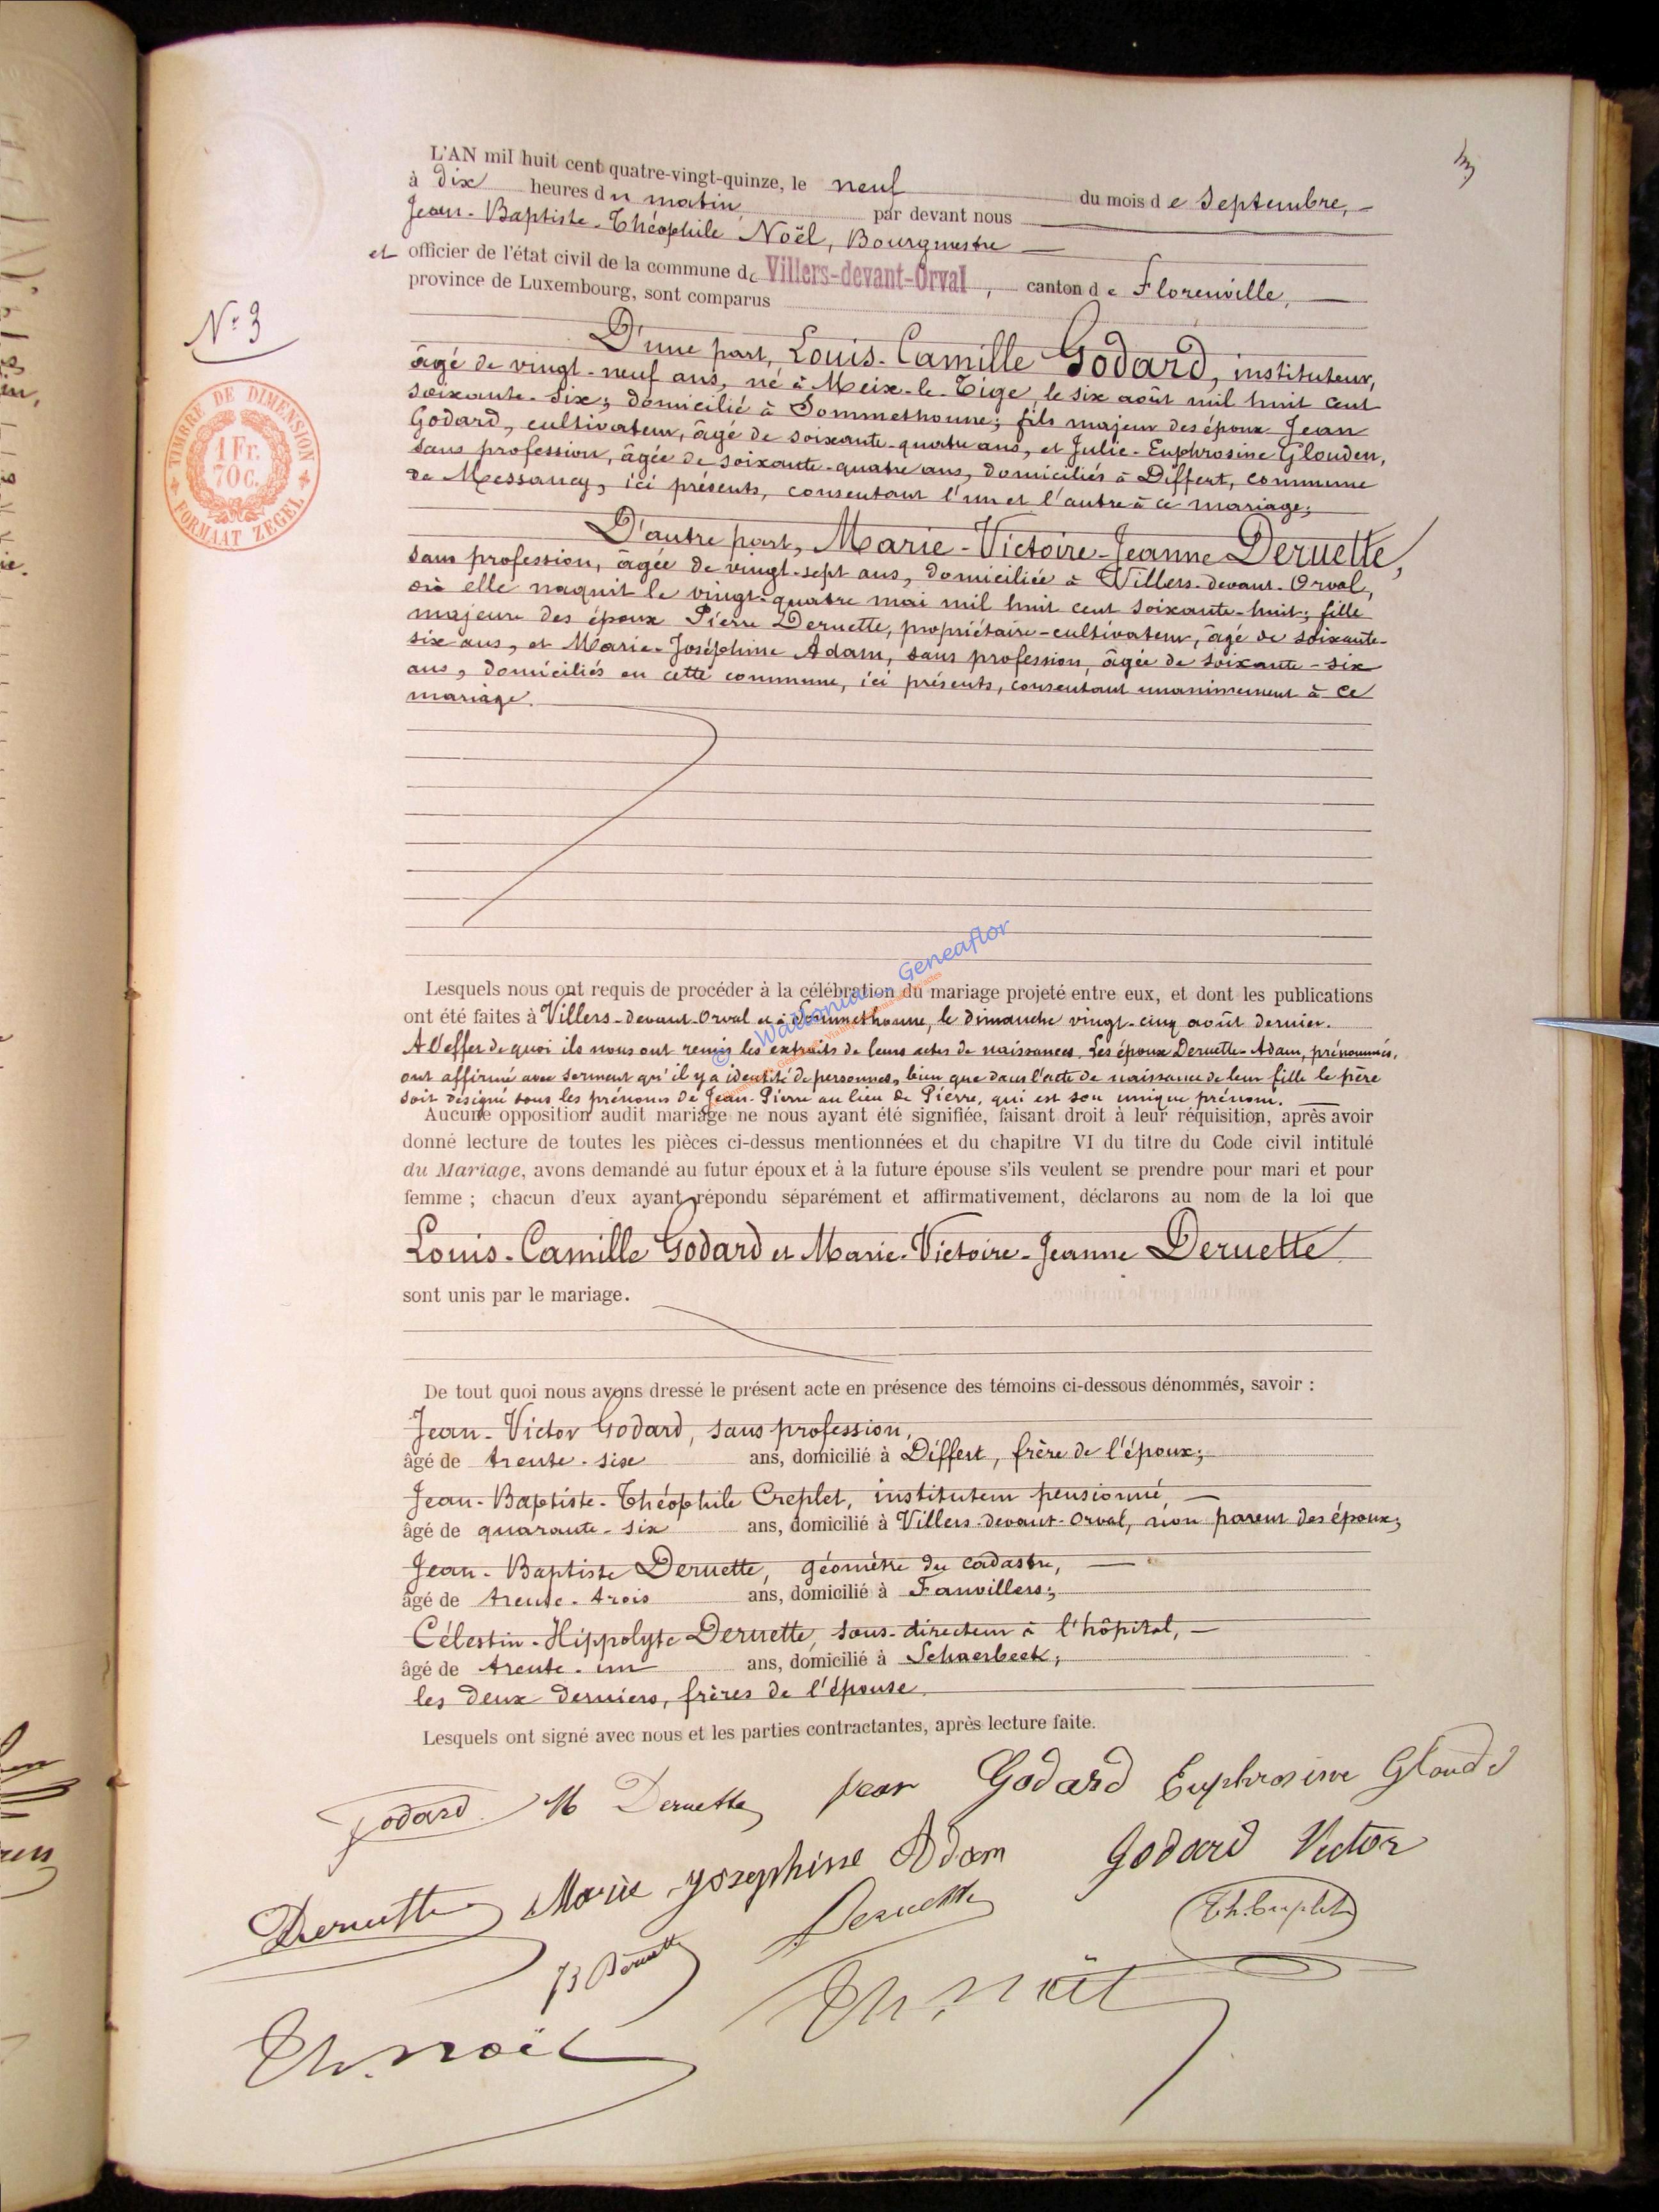 3
L'AN mil huit cent quatre-vingt-quinze, le neuf du mois de Septembre,
à dix heures du matin, par devant nous
Jean-Baptiste-Théophile Noël, Bourgmestre
et officier de l'état civil de la commune de Villers-devant-Orval, canton de Florenville,
province de Luxembourg, sont comparus
N° 3
TIMBRE DE DIMENSION
1 Fr.
70 c.
FORMAAT ZEGEL
D'une part, Louis-Camille Godard, instituteur,
âgé de vingt-neuf ans, né à Meix-le-Tige, le six août mil huit cent
soixante-six; domicilié à Sommethonne; fils majeur des époux Jean
Godard, cultivateur, âgé de soixante-quatre ans, et Julie-Euphrosine Glouden,
sans profession, âgée de soixante-quatre ans, domiciliés à Differt, commune
de Messancy, ici présents, consentant l'un et l'autre à ce mariage;
D'autre part, Marie-Victoire-Jeanne Deruette,
sans profession, âgée de vingt-sept ans, domiciliée à Villers-devant-Orval,
où elle naquit le vingt-quatre mai mil huit cent soixante-huit; fille
majeure des époux Pierre Deruette, propriétaire-cultivateur, âgé de soixante-
six ans, et Marie-Joséphine Adam, sans profession, âgée de soixante-six
ans, domiciliés en cette commune, ici présents, consentant unanimement à ce
mariage.
Lesquels nous ont requis de procéder à la célébration du mariage projeté entre eux, et dont les publications
ont été faites à Villers-devant-Orval et à Sommethonne, le dimanche vingt-cinq août dernier.
A l'effet de quoi ils nous ont remis les extraits de leurs actes de naissances. Les époux Deruette-Adam, prénommés,
ont affirmé avec serment qu'il y a identité de personnes, bien que dans l'acte de naissance de leur fille le père
soit désigné sous les prénoms de Jean-Pierre au lieu de Pierre, qui est son unique prénom.
© Wallonia Geneaflor
Aucune opposition audit mariage ne nous ayant été signifiée, faisant droit à leur réquisition, après avoir
donné lecture de toutes les pièces ci-dessus mentionnées et du chapitre VI du titre du Code civil intitulé
du Mariage, avons demandé au futur époux et à la future épouse s'ils veulent se prendre pour mari et pour
femme ; chacun d'eux ayant répondu séparément et affirmativement, déclarons au nom de la loi que
Louis-Camille Godard et Marie-Victoire-Jeanne Deruette
sont unis par le mariage.
De tout quoi nous avons dressé le présent acte en présence des témoins ci-dessous dénommés, savoir :
Jean-Victor Godard, sans profession,
âgé de trente-six ans, domicilié à Differt, frère de l'époux;
Jean-Baptiste-Théophile Creplet, instituteur pensionné,
âgé de quarante-six ans, domicilié à Villers-devant-Orval, non parent des époux;
Jean-Baptiste Deruette, géomètre du cadastre,
âgé de trente-trois ans, domicilié à Fauvillers;
Célestin-Hippolyte Deruette, sous-directeur à l'hôpital,
âgé de trente-un ans, domicilié à Schaerbeek;
les deux derniers, frères de l'épouse.
Lesquels ont signé avec nous et les parties contractantes, après lecture faite.
Godard M Deruette Jean Godard Euphrosine Gloud
Deruette Marie Josephine Adam Godard Victor
JB Deruette Deruette Th. Creplet
Th. Noël Th. Noël